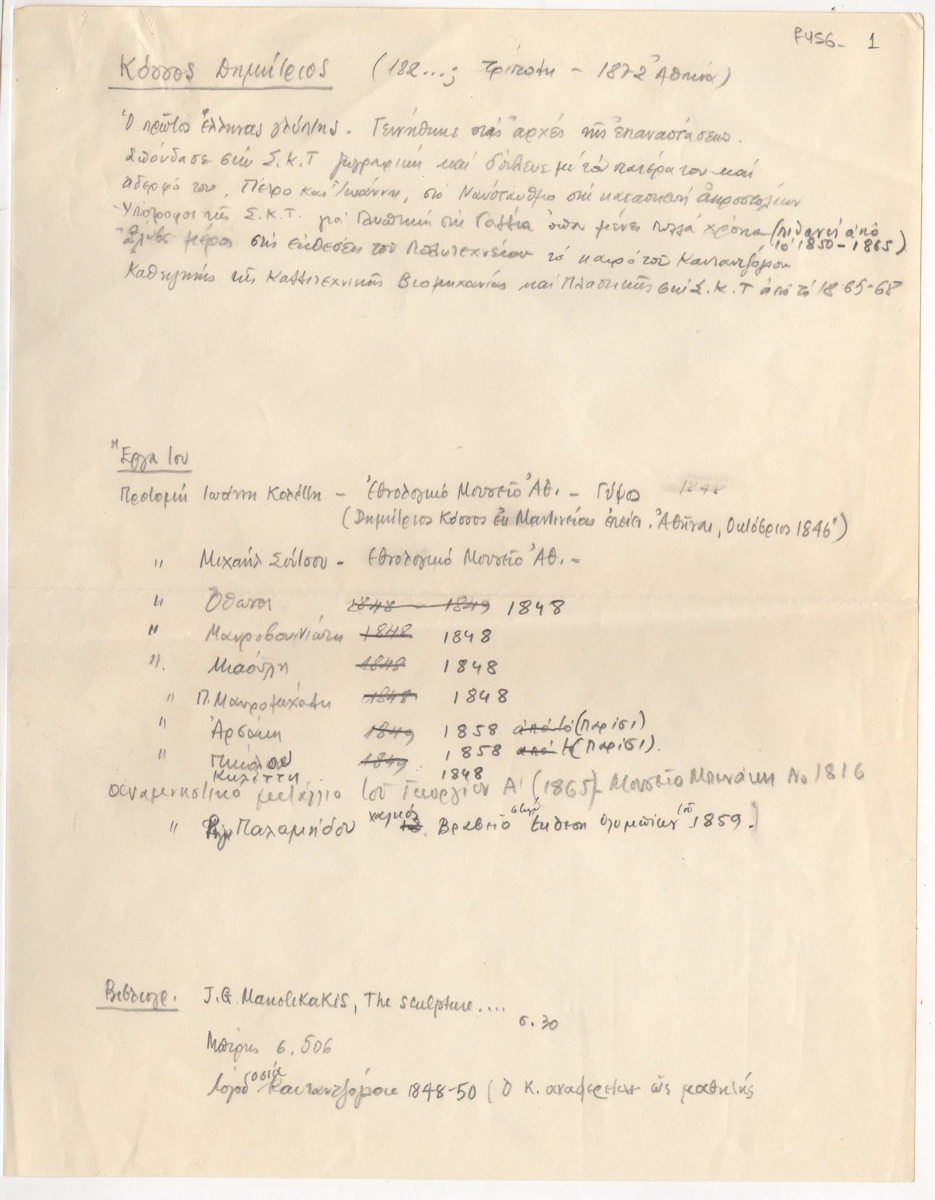 F456- 1
Κόσσος Δημήτριος (182...; Τρίπολη - 1872 Ἀθήνα)
Ὁ πρῶτος ἕλληνας γλύπτης. Γεννήθηκε στὶς ἀρχές τῆς ἐπαναστάσεως.
Σπούδασε στὴ Σ.Κ.Τ ζωγραφική καί δούλευε μέ τὸν πατέρα του καί
ἀδερφό του, Πέτρο καί Ἰωάννη, στὸ Ναύσταθμο στὴ κατασκευή ἀκροστολίων
Υπότροφος τῆς Σ.Κ.Τ. γιά Γλυπτική στὴ Γαλλία ὅπου μένει πολλά χρόνια (πιθανή ἀπό
τό 1850-1865)
Ἔλαβε μέρος στὴς ἐκθέσεις τοῦ Πολυτεχνείου τό καιρό τοῦ Καυταντζόγλου
Καθηγητής τῆς Καλλιτεχνικῆς Βιομηχανίας καί Πλαστικῆς στὴ Σ.Κ.Τ ἀπό τό 1865-68
Ἔργα Του
Προτομή Ιωάννη Κολέττη - Ἐθνολογικό Μουσεῖο Ἀθ. - Γύψος 1846
(Δημήτριος Κόσσος ἐκ Μαντινείας ἐποίει. Ἀθῆναι, Οκτόβριος 1846")
" Μιχαήλ Σούτσου - Εθνολογικό Μουσεῖο Ἀθ. -
" Ὄθωνος 1848 - 1849 1848
" Μαυροβουνιώτη 1848 1848
" Μιαούλη 1848 1848
" Π. Μαυρομιχάλη 1848 1848
" Ἀρσάκη 1849 1858 ἀπό τό (Παρίσι)
" 1849 1858 ἀπό τό (Παρίσι).
Κωλέττη 1848
ἀναμνηστικό μετάλλιο τοῦ Γεωργίου Α' (1865)- Μουσεῖο Μπενάκη No 1816
" Παλαμήδου χαλκός Βραβεῖο στὴν Εκθεση Ολυμπίων τοῦ 1859.)
Βιβλιογρ. J.G. Manolikakis, The sculpture....
σ. 30
Μπίρης σ. 506
Λογοδοσία Καυταντζόγλου 1848-50 (Ὁ Κ. αναφέρεται ὡς μαθητής